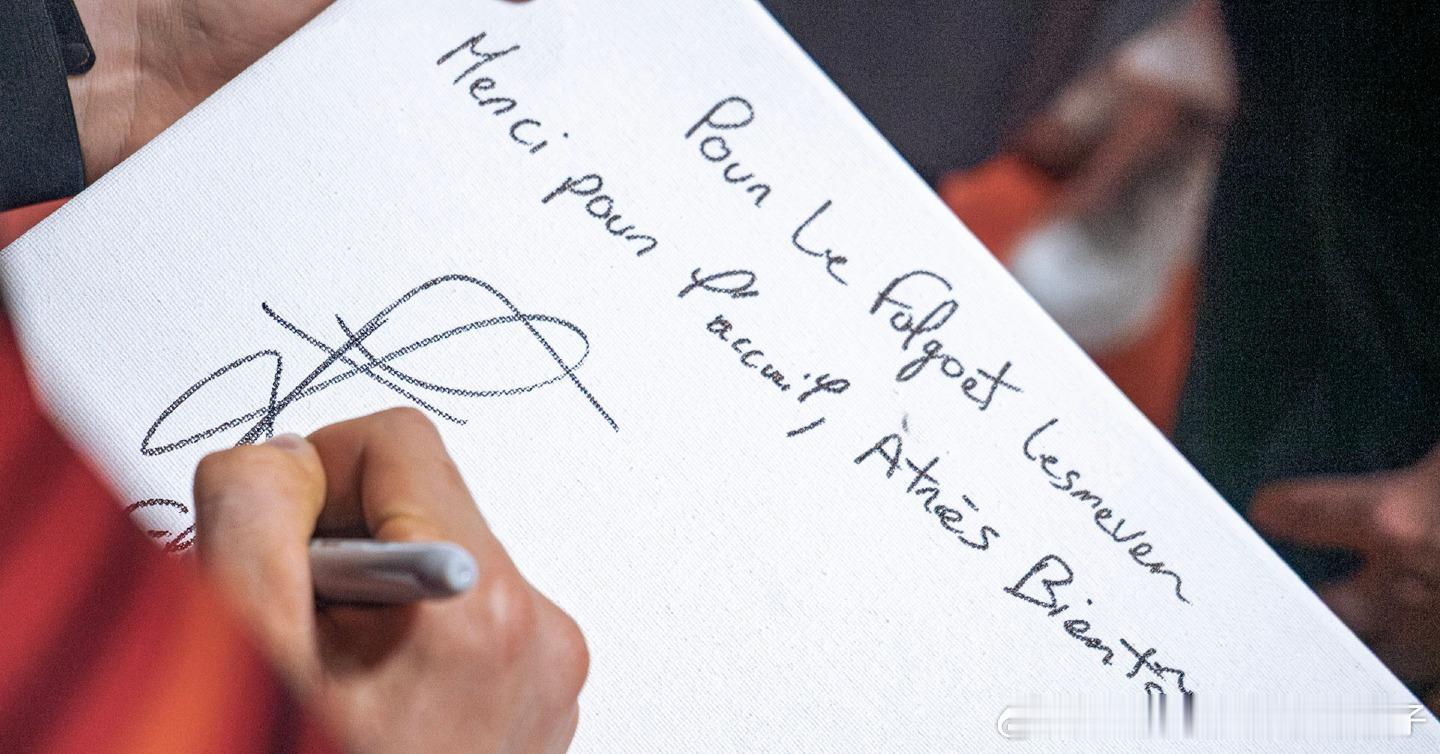 Pour Le Folgoët Lesneven
Merci pour l'accueil, À très Bientôt